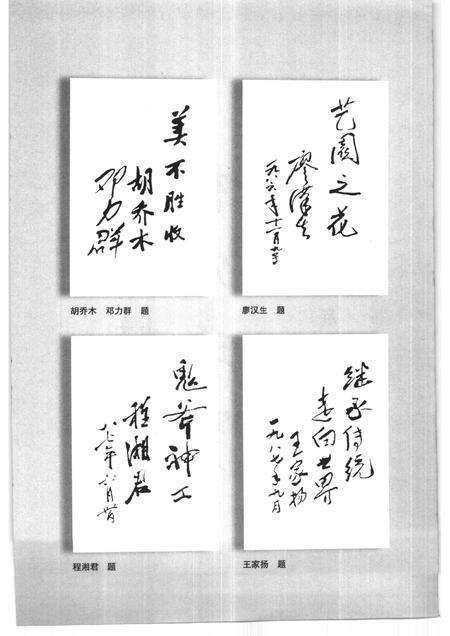 美不胜收
胡乔木
邓力群
胡乔木　邓力群　题
艺园之花
廖汉生
一九八六年十一月九日
廖汉生　题
鬼斧神工
程湘君
八七年六月廿日
程湘君　题
继承传统
走向世界
王家扬
一九八七年九月
王家扬　题